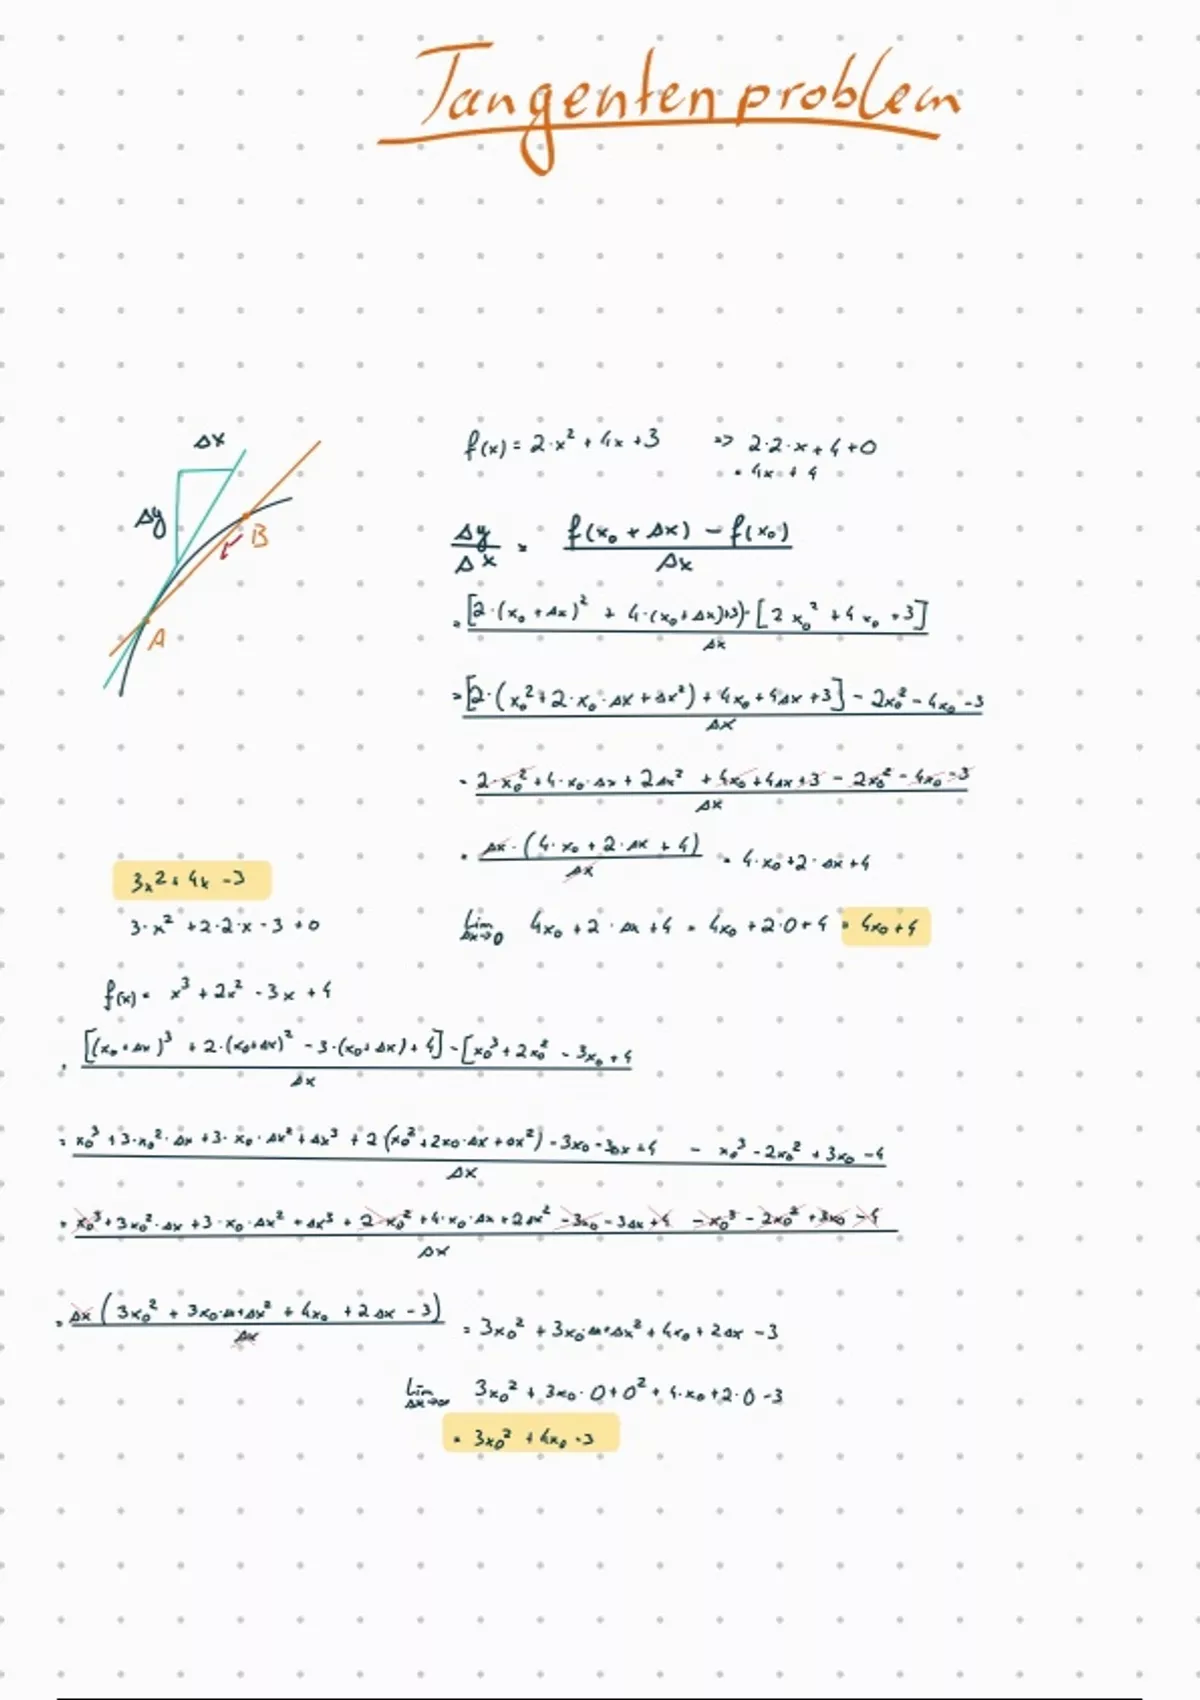 Tangentenproblem
Δx
Δy
B
A
f(x) = 2·x² + 4x + 3 => 2·2·x + 4 + 0
= 4x + 4
Δy/Δx = (f(x₀ + Δx) - f(x₀))/Δx
= ([2·(x₀ + Δx)² + 4·(x₀ + Δx)+3)-[2x₀² + 4x₀ + 3])/Δx
= ([2·(x₀² + 2·x₀·Δx + Δx²) + 4x₀ + 4Δx + 3] - 2x₀² - 4x₀ - 3)/Δx
= (2·x₀² + 4·x₀·Δx + 2Δx² + 4x₀ + 4Δx + 3 - 2x₀² - 4x₀ - 3)/Δx
= (Δx·(4·x₀ + 2·Δx + 4))/Δx = 4·x₀ + 2·Δx + 4
lim Δx→0 4x₀ + 2·Δx + 4 = 4x₀ + 2·0 + 4 = 4x₀ + 4
3x2 + 4x - 3
3·x² + 2·2·x - 3 + 0
f(x) = x³ + 2x² - 3x + 4
= ([(x₀ + Δx)³ + 2·(x₀+Δx)² - 3·(x₀+Δx) + 4] - [x₀³ + 2x₀² - 3x₀ + 4)/Δx
= (x₀³ + 3·x₀²·Δx + 3·x₀·Δx² + Δx³ + 2(x₀² + 2x₀·Δx + Δx²) - 3x₀ - 3Δx + 4 - x₀³ - 2x₀² + 3x₀ - 4)/Δx
= (x₀³ + 3x₀²·Δx + 3·x₀·Δx² + Δx³ + 2x₀² + 4·x₀·Δx + 2Δx² - 3x₀ - 3Δx + 4 - x₀³ - 2x₀² + 3x₀ - 4)/Δx
= (Δx(3x₀² + 3x₀·Δx+Δx² + 4x₀ + 2Δx - 3))/Δx = 3x₀² + 3x₀·Δx+Δx² + 4x₀ + 2Δx - 3
lim Δx→∞ 3x₀² + 3x₀·0 + 0² + 4·x₀ + 2·0 - 3
= 3x₀² + 4x₀ - 3